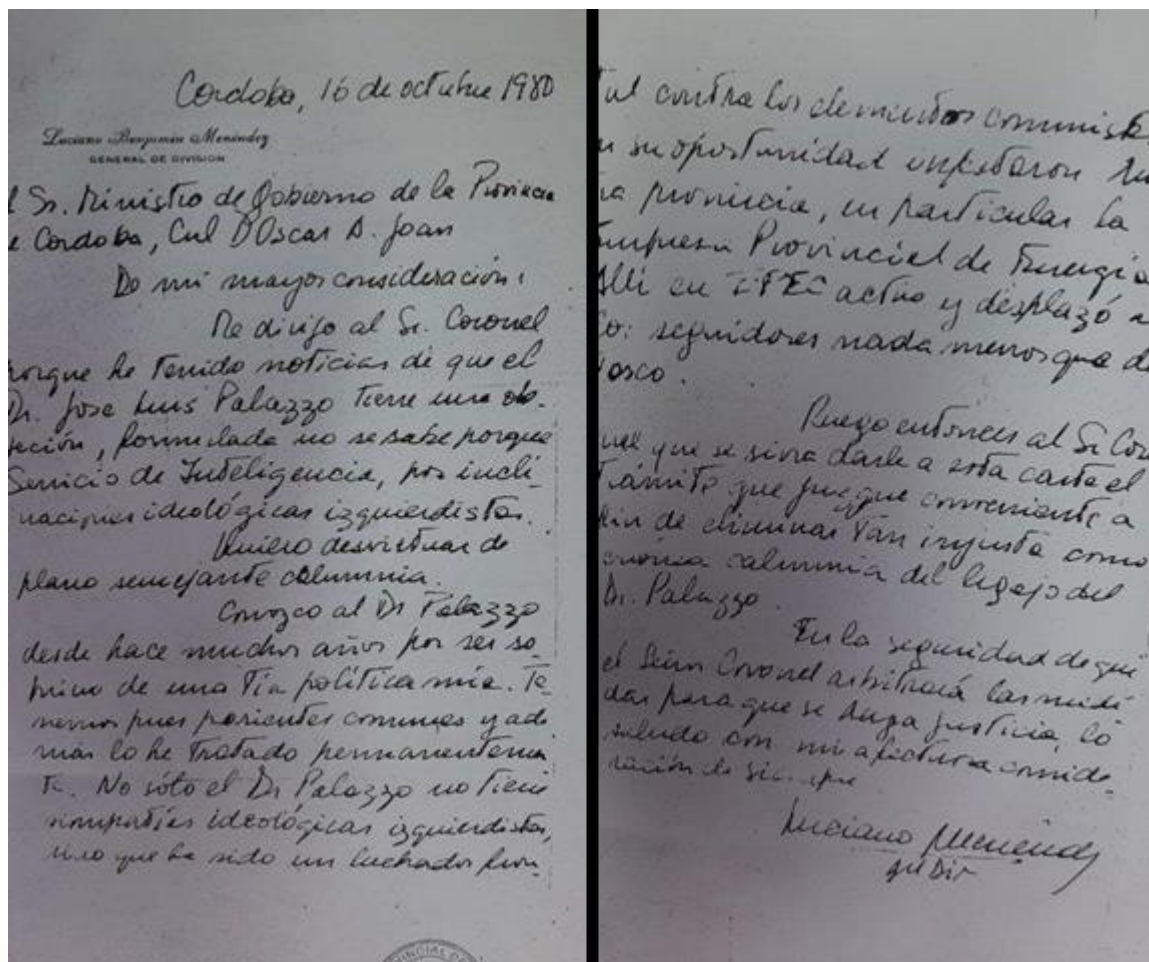 Cordoba, 16 de octubre 1980
Luciano Benjamín Menéndez
GENERAL DE DIVISION
l Sr. Ministro de Gobierno de la Provincia
e Cordoba, Cnl D Oscar A. Joan
De mi mayor consideración:
Me dirijo al Sr. Coronel
porque he tenido noticias de que el
Dr. Jose Luis Palazzo tiene una ob-
jeción, formulada no se sabe porque
Servicio de Inteligencia, por incli-
naciones ideológicas izquierdistas.
Quiero desvirtuar de
plano semejante calumnia.
Conozco al Dr Palazzo
desde hace muchos años por ser so-
brino de una Tía política mía. Te
nemos pues parientes comunes y ade
mas lo he Tratado permanenteme
te. No sólo el Dr Palazzo no tiene
simpatías ideológicas izquierdistas,
sino que ha sido un luchador fron-
tal contra los elementos comunist
n su oportunidad infestaron nu
ra provincia, en particular la
mpresa Provincial de Energia
Alli en EPEC actuo y desplazó a
co: seguidores nada menos que d
osco.
Ruego entonces al Sr Cor
nel que se sirva darle a esta carta el
Trámite que juzgue conveniente a
fin de eliminar tan injusta como
calumnia del legajo del
Dr. Palazzo.
En la seguridad de que
el Señor Coronel arbitrará las medi
das para que se haga justicia, lo
saludo con mi afectuosa conside-
ración de siempre
Luciano Menéndez
Gr Div